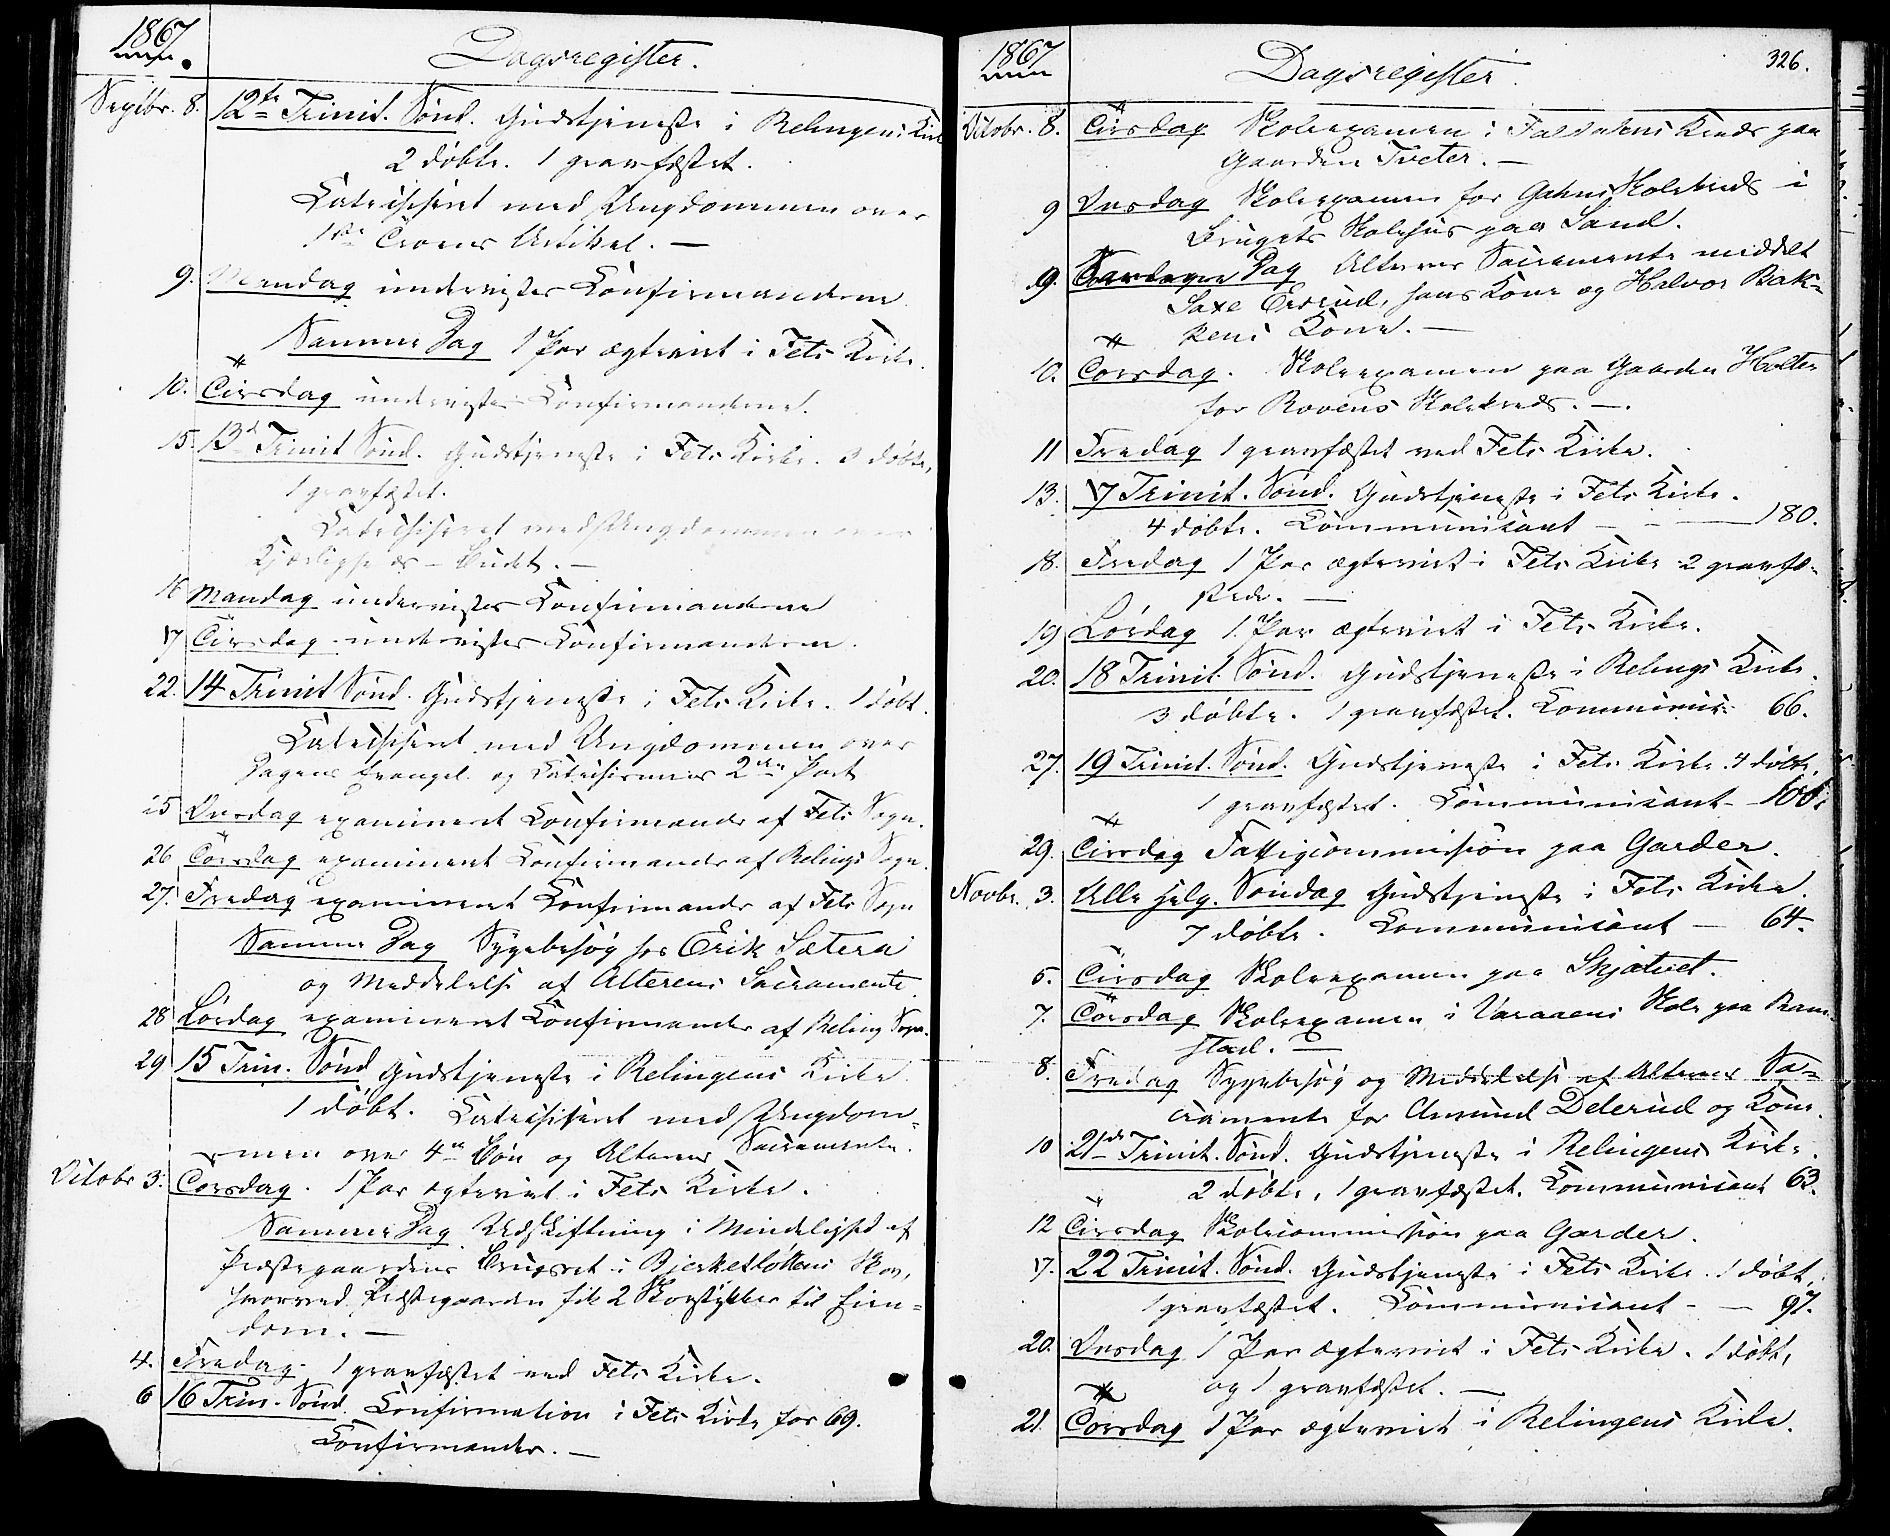 1867.
Dagsregister.
Septbr. 8. 12te Trinit. Sønd. Gudstjeneste i Relingens Kirke
2 døbte. 1 gravfæstet.
Catechiseret med Ungdommen over
1ste Troens Artikel. —
9. Mandag underviistes Confirmanderne.
Samme Dag 1 Par ægteviet i Fets Kirke.
10. Tirsdag underviistes Confirmanderne.
15. 13d Trinit Sønd. Gudstjeneste i Fets Kirke. 3 døbte,
1 gravfæstet.
Catechiseret med Ungdommen over
Kjærligheds-Budet. —
16 Mandag underviistes Confirmanderne
17 Tirsdag underviistes Confirmanderne.
22. 14 Trinit Sønd. Gudstjeneste i Fets Kirke. 1 døbt.
Catechiseret med Ungdommen over
Dagens Evangel. og Catechismens 2den Part
25 Onsdag examineret Confirmander af Fets Sogn.
26 Torsdag examineret Confirmander af Relings Sogn.
27. Fredag examineret Confirmander af Fets Sogn
Samme Dag Sygebesøg hos Erik Sætera
og Meddelelse af Alterens Sacramente
28 Lørdag examineret Confirmander af Reling Sogn.
29 15 Trin. Sønd Gudstjeneste i Relingens Kirke
1 døbt. Catechiseret med Ungdom-
men over 4de Bøn og Alterens Sacramente.
Octobr 3. Torsdag. 1 Par ægteviet i Fets Kirke.
Samme Dag Udskiftning i Mindelighed af
Præstegaardens Brugsret i Bjerkesløttens Skov,
hvorved Præstegaarden fik 2 Skovstykker til Eien-
dom. —
4. Fredag. 1 gravfæstet ved Fets Kirke.
6 16 Trin. Sønd. Confirmation i Fets Kirke for 69.
Confirmander. —
1867
Dagsregister.
326.
Octobr. 8. Tirsdag Skoleexamen i Faldalens Kreds paa
Gaarden Tveter. —
9 Onsdag Skoleexamen for Gahns Skolekreds i
Brugets Skolehus paa Sand.
9. Dag Alterens Sacramente meddelt
Saxe Ersrud, hans Kone og Halvor Bak-
kens Kone. —
10. Torsdag. Skoleexamen paa Gaarden Holter
for Rovens Skolekreds. —.
11 Fredag 1 gravfæstet ved Fets Kirke.
13. 17 Trinit. Sønd. Gudstjeneste i Fets Kirke.
4 døbte. Communicant — 180.
18. Fredag 1 Par ægteviet i Fets Kirke 2 gravfæ-
stede. —
19 Lørdag 1 Par ægteviet i Fets Kirke.
20. 18 Trinit. Sønd. Gudstjeneste i Relings Kirke.
3 døbte. 1 gravfæstet. Communic: 66.
27. 19 Trinit. Sønd. Gudstjeneste i Fets Kirke. 4 døbte,
1 gravfæstet. Communicant
29. Tirsdag Fattigcommission paa Garder.
Novbr. 3. Alle Helg. Søndag Gudstjeneste i Fets Kirke.
7 døbte. Communicant — 64.
5. Tirsdag Skoleexamen paa Skjatvet.
7. Torsdag Skoleexamen i Varaaens Skole paa Ram-
stad. —
8. Fredag Sygebesøg og Meddelelse af Alterens Sa-
cramente for Amund Delerud og Kone.
10 21de Trinit. Sønd. Gudstjeneste i Relingens Kirke.
2 døbte, 1 gravfæstet. Communicant 63.
12 Tirsdag Skolecommission paa Garder.
17. 22 Trinit. Sønd. Gudstjeneste i Fets Kirke. 1 døbt,
1 gravfæstet. Communicant — 97.
20. Onsdag 1 Par ægteviet i Fets Kirke. 1 døbt,
og 1 gravfæstet. —
21. Torsdag 1 Par ægteviet i Relingens Kirke.